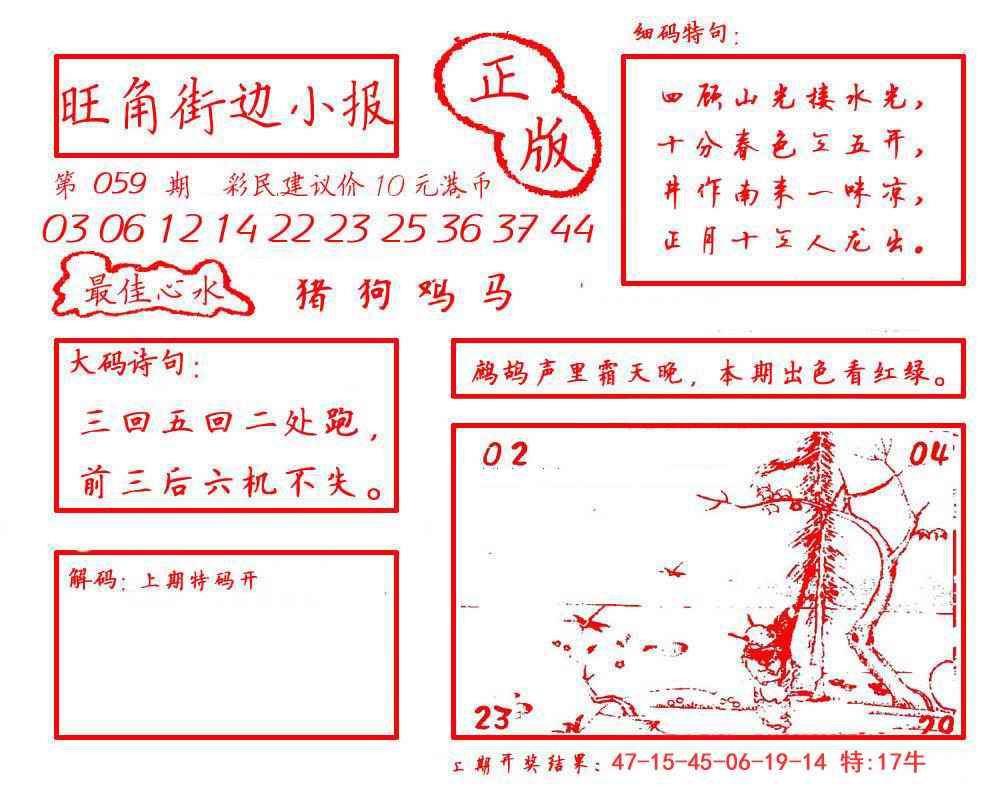 旺角街边小报
正版
第 059 期 彩民建议价 10 元港币
03 06 12 14 22 23 25 36 37 44
最佳心水
猪 狗 鸡 马
细码特句：
四顾山光接水光，
十分春色三五开，
井作南来一味凉，
正月十三人龙出。
大码诗句：
三回五回二处跑，
前三后六机不失。
鹧鸪声里霜天晚，本期出色看红绿。
解码：上期特码开
02
04
23
20
上期开奖结果：47-15-45-06-19-14 特:17牛